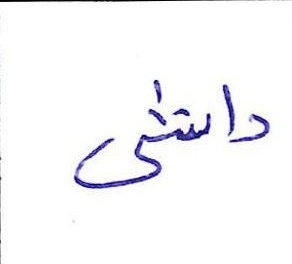 دانشی